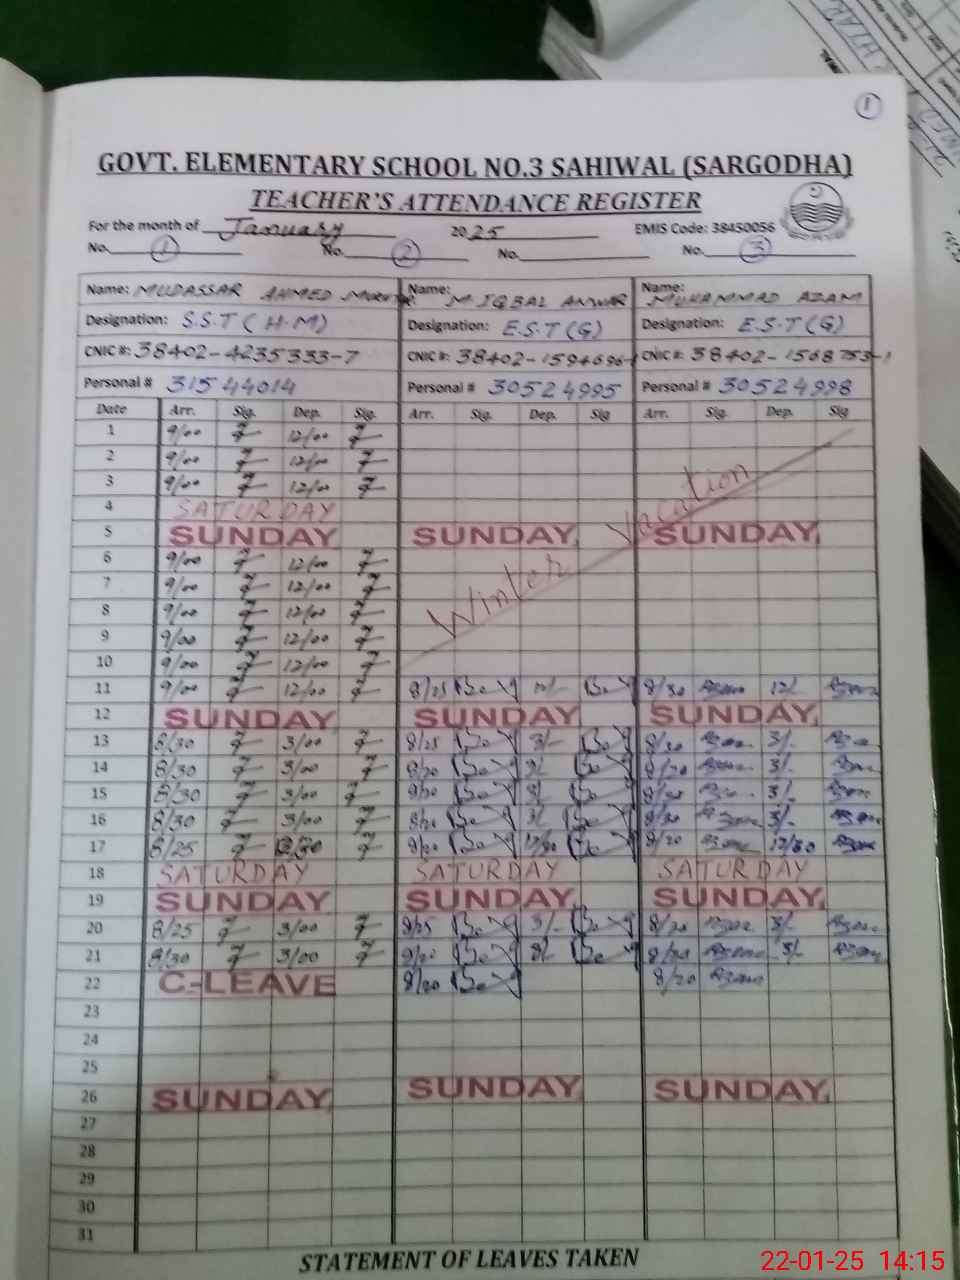 1
GOVT. ELEMENTARY SCHOOL NO.3 SAHIWAL (SARGODHA)
TEACHER'S ATTENDANCE REGISTER
For the month of January 2025 EMIS Code: 38450056
No. 1 No. 2 No. No. 3
Name: MUDASSAR AHMED Name: M. IQBAL ANWAR Name: MUHAMMAD AZAM
Designation: S.S.T (H.M) Designation: E.S.T (G) Designation: E.S.T (G)
CNIC #: 38402-4235333-7 CNIC #: 38402-1594696-1 CNIC #: 38402-1568753-1
Personal # 31544014 Personal # 30524995 Personal # 30524998
Date Arr. Sig. Dep. Sig. Arr. Sig. Dep. Sig Arr. Sig. Dep. Sig
1 9/00 12/00
2 9/00 12/00
3 9/00 12/00
4 SATURDAY
5 SUNDAY SUNDAY SUNDAY
Winter Vacation
6 9/00 12/00
7 9/00 12/00
8 9/00 12/00
9 9/00 12/00
10 9/00 12/00
11 9/00 12/00 8/25 8/30 Azam 12/- Azam
12 SUNDAY SUNDAY SUNDAY
13 8/30 3/00 8/25 3/- 8/30 Azam 3/- Azam
14 8/30 3/00 8/20 3/- 8/20 Azam 3/- Azam
15 8/30 3/00 8/20 3/- Azam 3/- Azam
16 8/30 3/00 8/20 3/- Azam 3/- Azam
17 8/25 8/20 8/20 Azam 12/30 Azam
18 SATURDAY SATURDAY SATURDAY
19 SUNDAY SUNDAY SUNDAY
20 8/25 3/00 8/25 3/- 8/20 Azam 3/- Azam
21 8/30 3/00 8/20 3/- Azam 3/- Azam
22 C-LEAVE 8/20 8/20 Azam
23
24
25
26 SUNDAY SUNDAY SUNDAY
27
28
29
30
31
STATEMENT OF LEAVES TAKEN
22-01-25 14:15